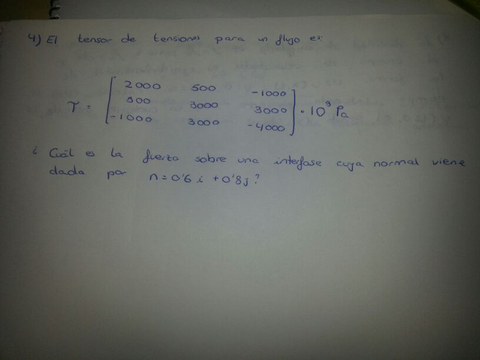 4) El tensor de tensiones para un flujo es
2000 500 -1000
T = 500 3000 3000 · 10³ Pa
-1000 3000 -4000
¿ Cuál es la fuerza sobre una interfase cuya normal viene
dada por n=0'6 i +0'8j ?